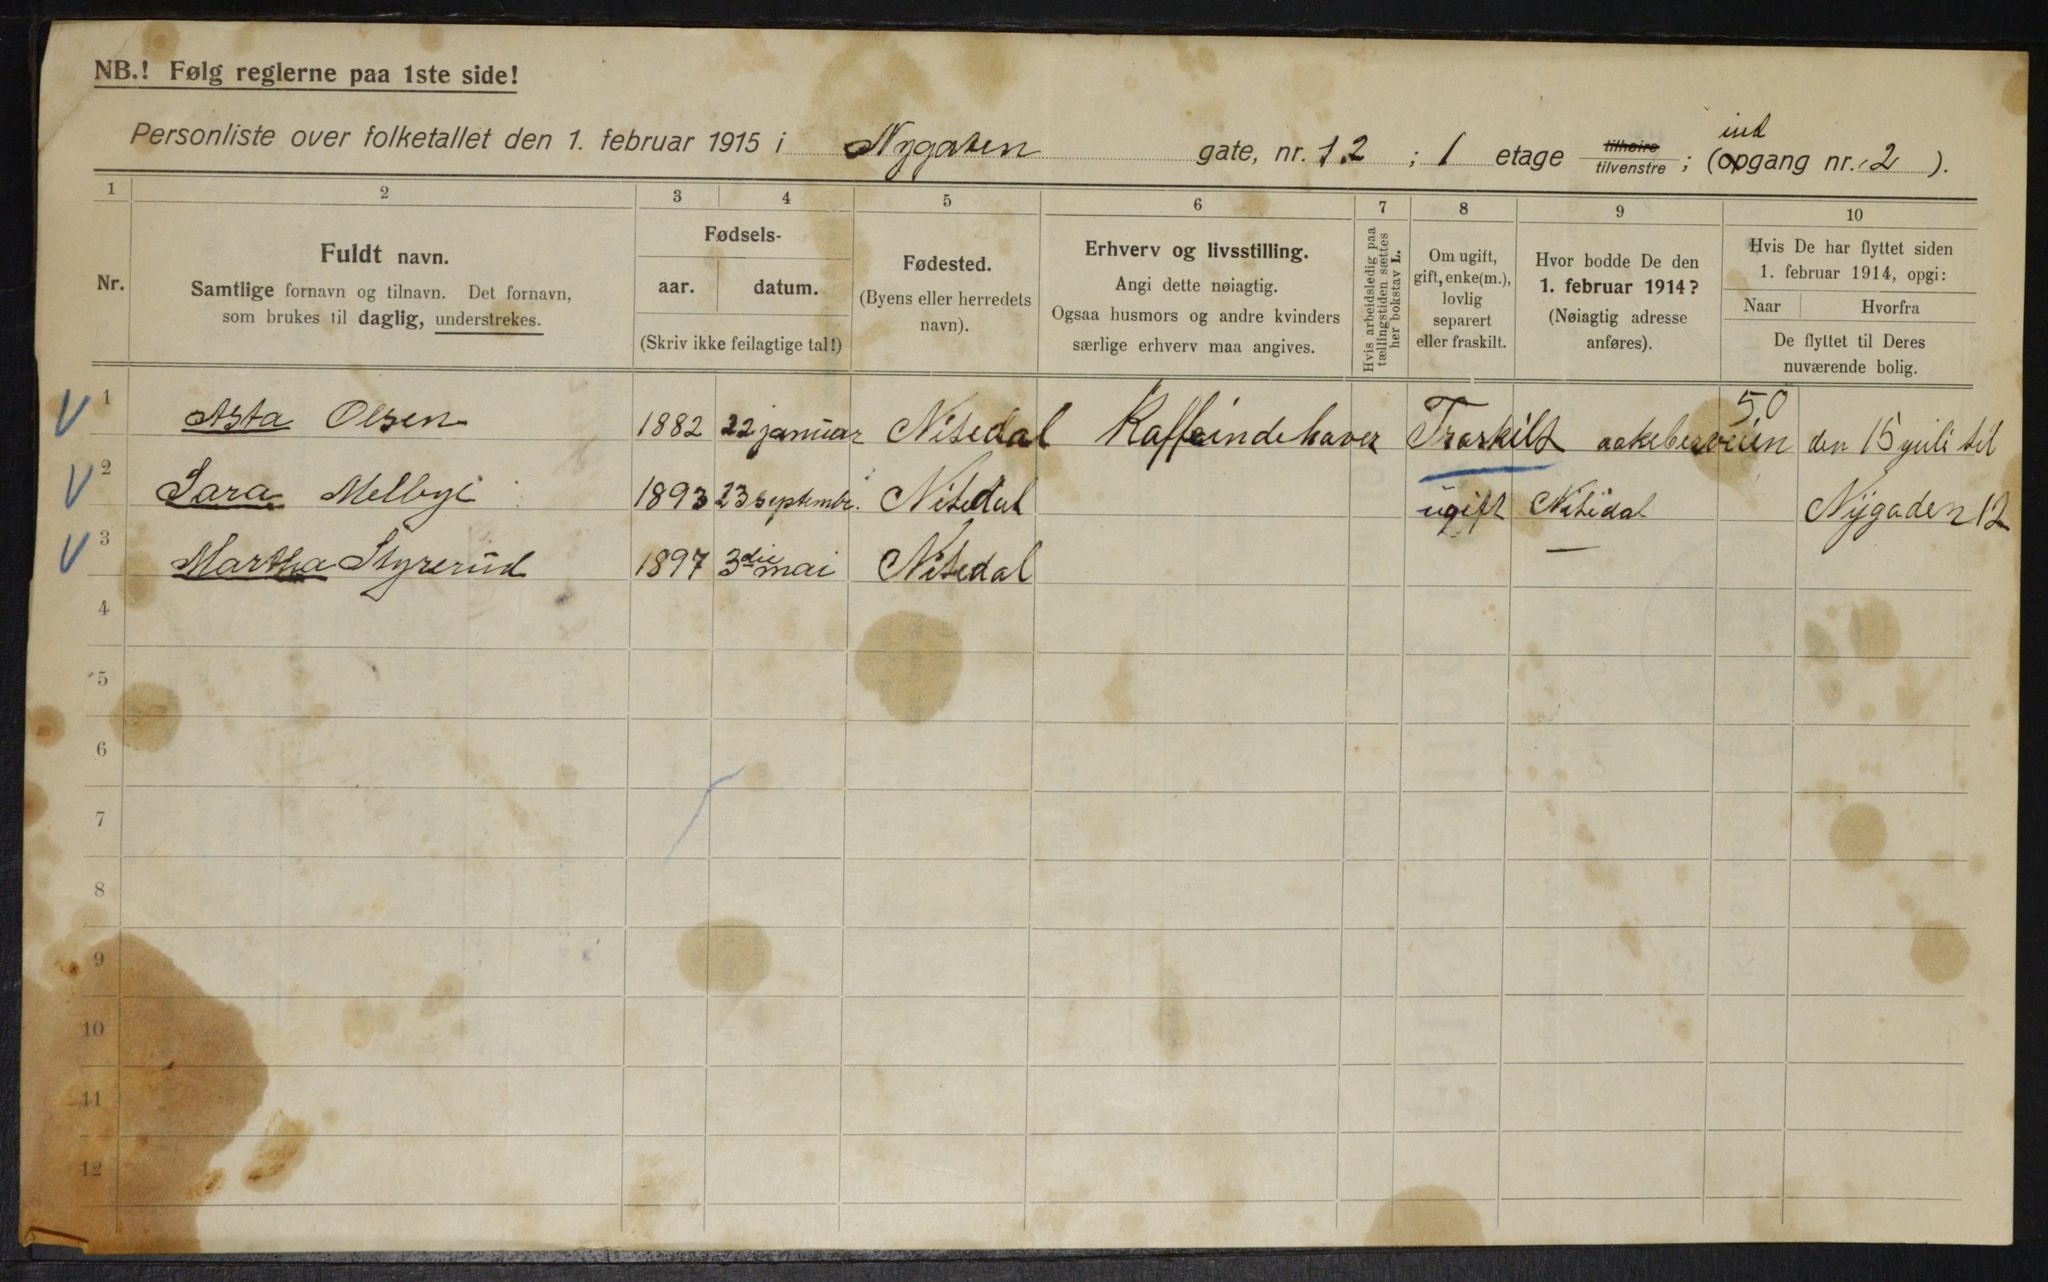 NB.! Følg reglerne paa 1ste side!
Personliste over folketallet den 1. februar 1915 i Nygaten gate, nr. 12 ; 1 etage tilhøire tilvenstre ; (opgang nr. 2 ).
ind
1 2 3 4 5 6 7 8 9 10
Nr.
Fuldt navn.
Samtlige fornavn og tilnavn. Det fornavn,
som brukes til daglig, understrekes.
Fødsels-
aar. datum.
(Skriv ikke feilagtige tal!)
Fødested.
(Byens eller herredets
navn).
Erhverv og livsstilling.
Angi dette nøiagtig.
Ogsaa husmors og andre kvinders
særlige erhverv maa angives.
Hvis arbeidsledig paa
tællingstiden sættes
her bokstav L.
Om ugift,
gift, enke(m.),
lovlig
separert
eller fraskilt.
Hvor bodde De den
1. februar 1914?
(Nøiagtig adresse
anføres).
Hvis De har flyttet siden
1. februar 1914, opgi:
Naar Hvorfra
De flyttet til Deres
nuværende bolig.
V 1 Asta Olsen 1882 22 januar Nitedal Kaffeindehaver Fraskilt aakeberveien 50 den 15 juli til
V 2 Sara Melbye 1893 23 septembr. Nitedal ugift Nitidal Nygaden 12
V 3 Martha Styrerud 1897 3die mai Nitedal —
4
5
6
7
8
9
10
11
12